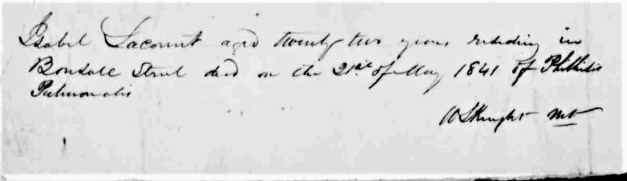 Isabel Lacount aged twenty two years residing in
Bonsall Street died on the 21st of May 1841 of Phthisis
Pulmonalis
W S Knight MD